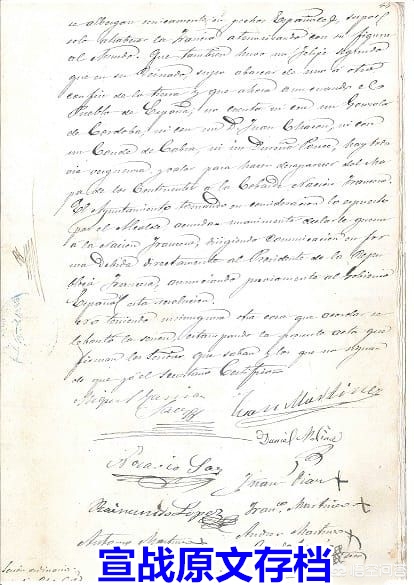 se albergan unicamente en pechos Españoles, supo el
solo ahabarse la Francia atemorizada con su figura
al Mundo. Que tambien hubo un Felipe segundo
que en su Reinado supo abarcar de uno a otro
confin de la tierra y que ahora aun cuando el
Pueblo de España, no cuenta ni con un Gonzalo
de Córdoba, ni con un D. Juan Chacon, ni con
un Conde de Cabra, ni un Ponce, hay toda
via verguenza y valor para hacer desaparecer del Ma-
pa de los Continentes a la Cobarde Nacion Francesa.
El Ayuntamiento tomando en consideracion lo espuesto
por el Alcalde acuerdan unanimemente declarar la guerra
a la Nacion Francesa dirigiendo comunicacion en for-
ma debida directamente al Presidente de la Repu-
blica Francesa, anunciando previamente al Gobierno
Español esta resolucion.
no teniendo ninguna otra cosa que acordar se
lebanta la sesion, estampando la presente acta que
firman los Señores que saben y los que no signan
de que yo el Secretario Certifico=
Miguel Garcia
Saez
Juan Martinez
Daniel Molina
Rosario
Juan
Raimundo Lopez
Fran.co Martinez
Antonio Martinez
Andres Martinez
Sesion ordinaria
宣战原文存档
悟空问答